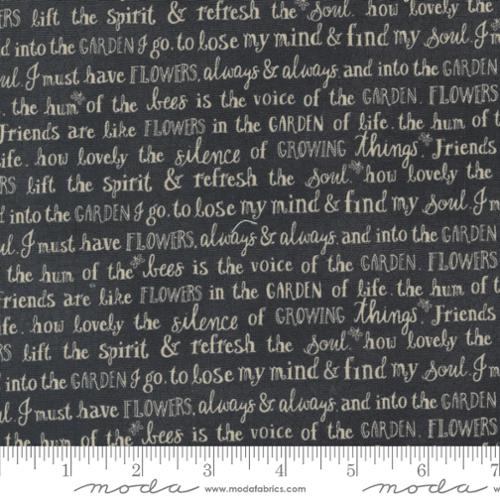 RS lift the spirit & refresh the soul. how lovely the
d into the GARDEN I go. to lose my mind & find my soul. I m
ul. I must have FLOWERS, always & always. and into the GARDEN
. the hum of the bees is the voice of the GARDEN. FLOWERS
Friends are like FLOWERS in the GARDEN of life. the hum of t
ife. how lovely the silence of GROWING things. Friends
RS lift the spirit & refresh the soul how lovely the
d into the GARDEN I go. to lose my mind & find my soul. I m
ul. I must have FLOWERS, always & always. and into the GARDEN
the hum of the bees is the voice of the GARDEN. FLOWERS
Friends are like FLOWERS in the GARDEN of life. the hum of t
ife. how lovely the silence of GROWING things. Friends
RS lift the spirit & refresh the soul. how lovely the
l into the GARDEN I go. to lose my mind & find my soul. I m
ul. I must have FLOWERS, always & always. and into the GARDEN
the hum of the bees is the voice of the GARDEN. FLOWERS
1 2 3 4 5 6 7
moda www.modafabrics.com moda